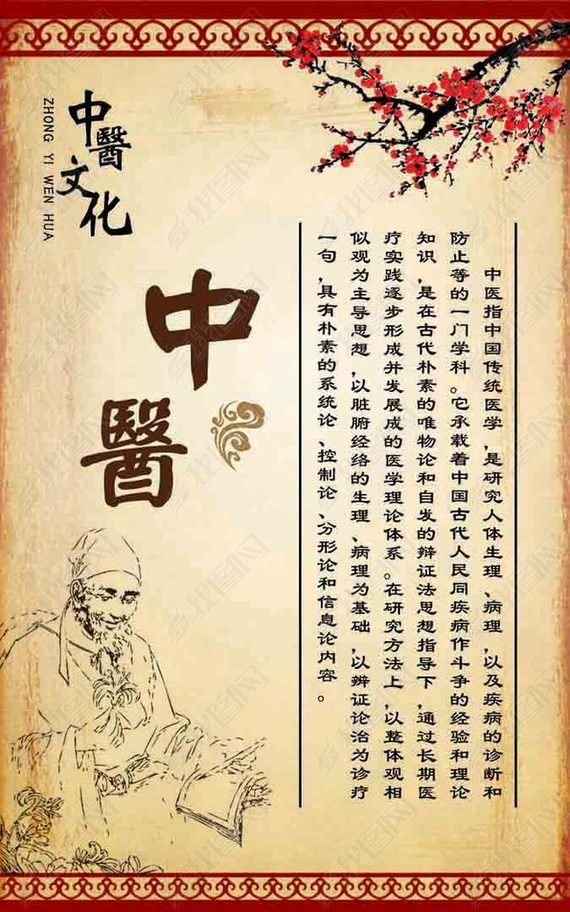 中醫
文化
ZHONG YI WEN HUA
中
醫
中医指中国传统医学，是研究人体生理、病理，以及疾病的诊断和
防止等的一门学科。它承载着中国古代人民同疾病作斗争的经验和理论
知识，是在古代朴素的唯物论和自发的辩证法思想指导下，通过长期医
疗实践逐步形成并发展成的医学理论体系。在研究方法上，以整体观相
似观为主导思想，以脏腑经络的生理、病理为基础，以辨证论治为诊疗
一句，具有朴素的系统论、控制论、分形论和信息论内容。